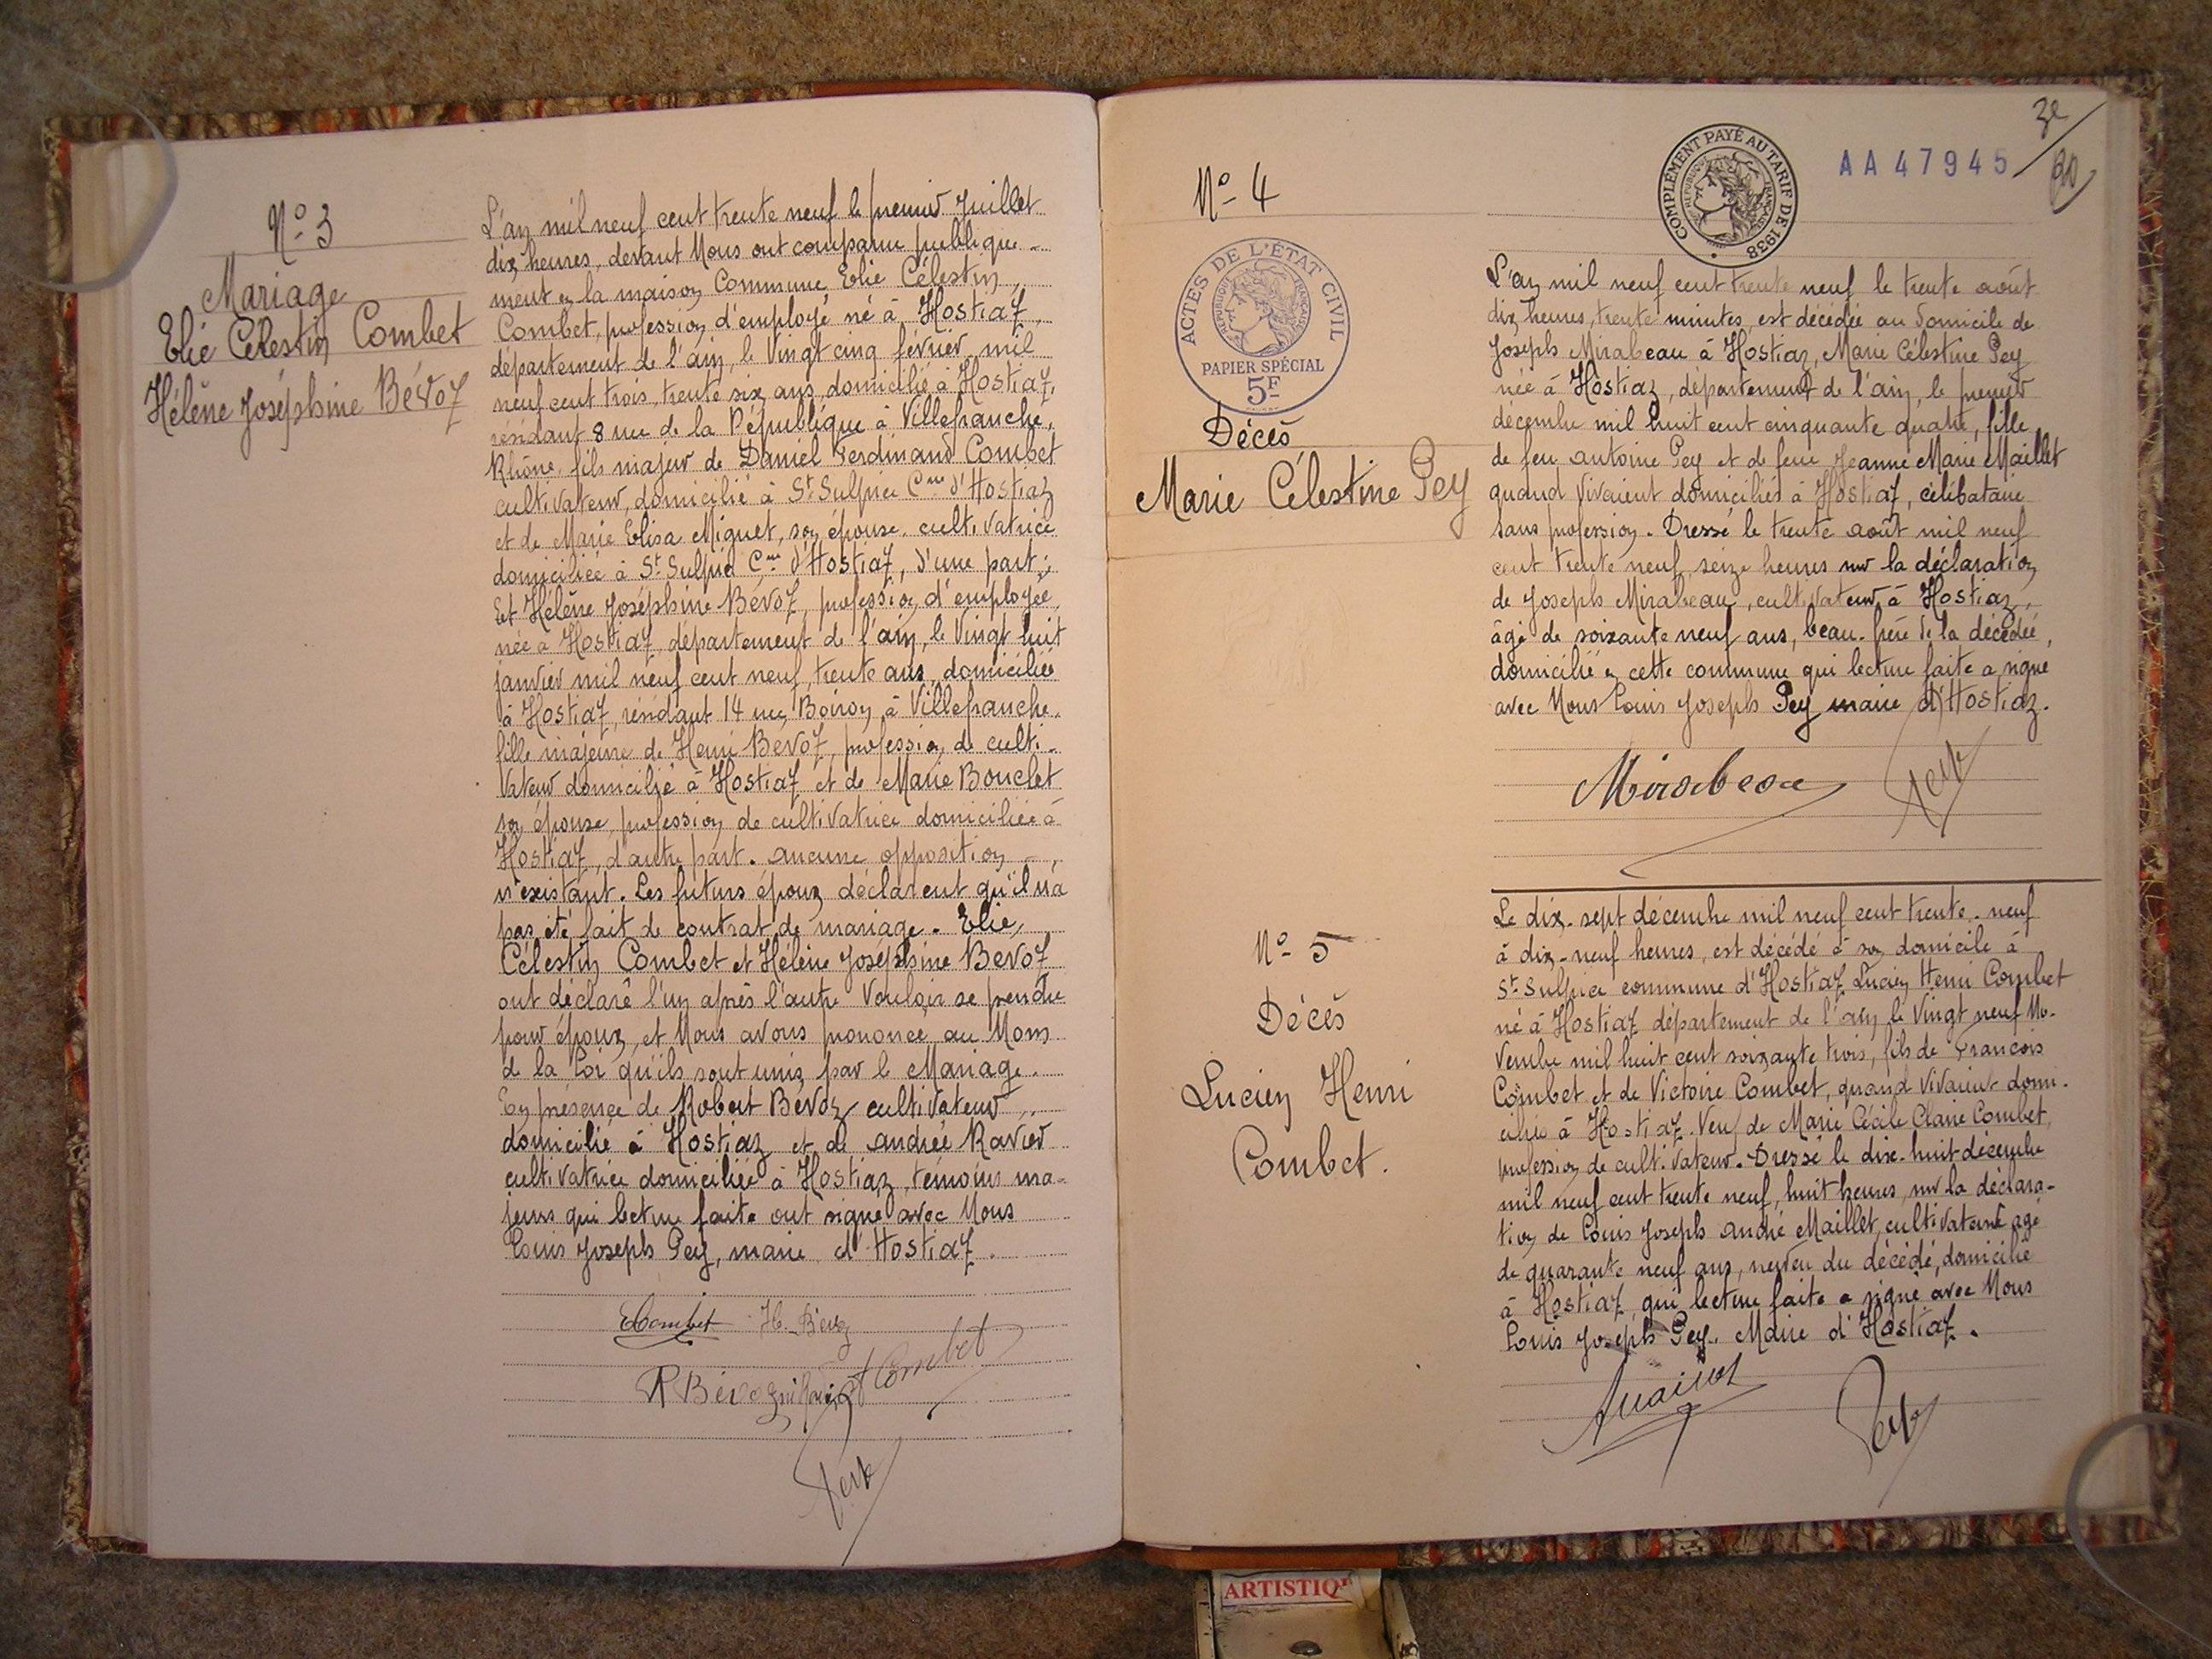 N° 3
Mariage
Elie Célestin Combet
Hélène Joséphine Bévoz
L'an mil neuf cent trente neuf le premier Juillet
dix heures, devant Nous ont comparu publique-
ment en la maison Commune, Elie Célestin
Combet, profession d'employé né à Hostiaz,
département de l'ain, le Vingt cinq février mil
neuf cent trois, trente six ans, domicilié à Hostiaz,
résidant 8 rue de la République à Villefranche,
Rhône, fils majeur de Daniel Ferdinand Combet
cultivateur, domicilié à St Sulpice Cne d'Hostiaz
et de Marie Elisa Miguet, son épouse, cultivatrice
domiciliée à St Sulpice Cne d'Hostiaz, d'une part;
Et Hélène Joséphine Bévoz, profession d'employée,
née à Hostiaz, département de l'ain, le Vingt huit
janvier mil neuf cent neuf, trente ans, domiciliée
à Hostiaz, résidant 14 rue Boiron, à Villefranche,
fille majeure de Henri Bévoz, profession de culti-
vateur domicilié à Hostiaz et de Marie Bouclet
son épouse, profession de cultivatrice domiciliée à
Hostiaz, d'autre part. aucune opposition
n'existant. Les futurs époux déclarent qu'il n'a
pas été fait de contrat de mariage. Elie,
Célestin Combet et Hélène Joséphine Bevoz
ont déclaré l'un après l'autre Vouloir se prendre
pour époux, et Nous avons prononcé au Nom
de la Loi qu'ils sont unis par le Mariage.
En présence de Robert Bevoz cultivateur
domicilié à Hostiaz et de andrée Ravier
cultivatrice domiciliée à Hostiaz, témoins ma-
jeurs qui lecture faite ont signé avec Nous
Louis Joseph Pey, maire d'Hostiaz.
ECombet H. Bévoz
R Bévoz Combet
Pey
N° 4
ACTES DE L'ÉTAT CIVIL
RÉPUBLIQUE FRANÇAISE
PAPIER SPÉCIAL
5F
Décès
Marie Célestine Pey
COMPLÉMENT PAYÉ AU TARIF DE 1938
RÉPUBLIQUE FRANÇAISE
AA 47945
L'an mil neuf cent trente neuf le trente août
dix heures, trente minutes, est décédée au domicile de
Joseph Mirabeau à Hostiaz, Marie Célestine Pey
née à Hostiaz, département de l'ain, le premier
décembre mil huit cent cinquante quatre, fille
de feu antoine Pey et de feue Jeanne Marie Maillet
quand Vivaient domiciliés à Hostiaz, célibataire
sans profession. Dressé le trente août mil neuf
cent trente neuf, seize heures sur la déclaration
de Joseph Mirabeau, cultivateur à Hostiaz,
âgé de soixante neuf ans, beau-frère de la décédée,
domicilié en cette commune qui lecture faite a signé
avec Nous Louis Joseph Pey maire d'Hostiaz.
Mirabeau Pey
N° 5
Décès
Lucien Henri
Combet.
Le dix-sept décembre mil neuf cent trente-neuf
à dix-neuf heures, est décédé à son domicile à
St Sulpice commune d'Hostiaz Lucien Henri Combet
né à Hostiaz département de l'ain le Vingt neuf No-
vembre mil huit cent soixante trois, fils de François
Combet et de Victoire Combet, quand Vivaient domi-
ciliés à Hostiaz. Veuf de Marie Cécile Claire Combet,
profession de cultivateur. Dressé le dix-huit décembre
mil neuf cent trente neuf, huit heures, sur la déclara-
tion de Louis Joseph André Maillet, cultivateur âgé
de quarante neuf ans, neveu du décédé, domicilié
à Hostiaz, qui lecture faite a signé avec Nous
Louis Joseph Pey, Maire d'Hostiaz.
Maillet Pey
ARTISTIQ